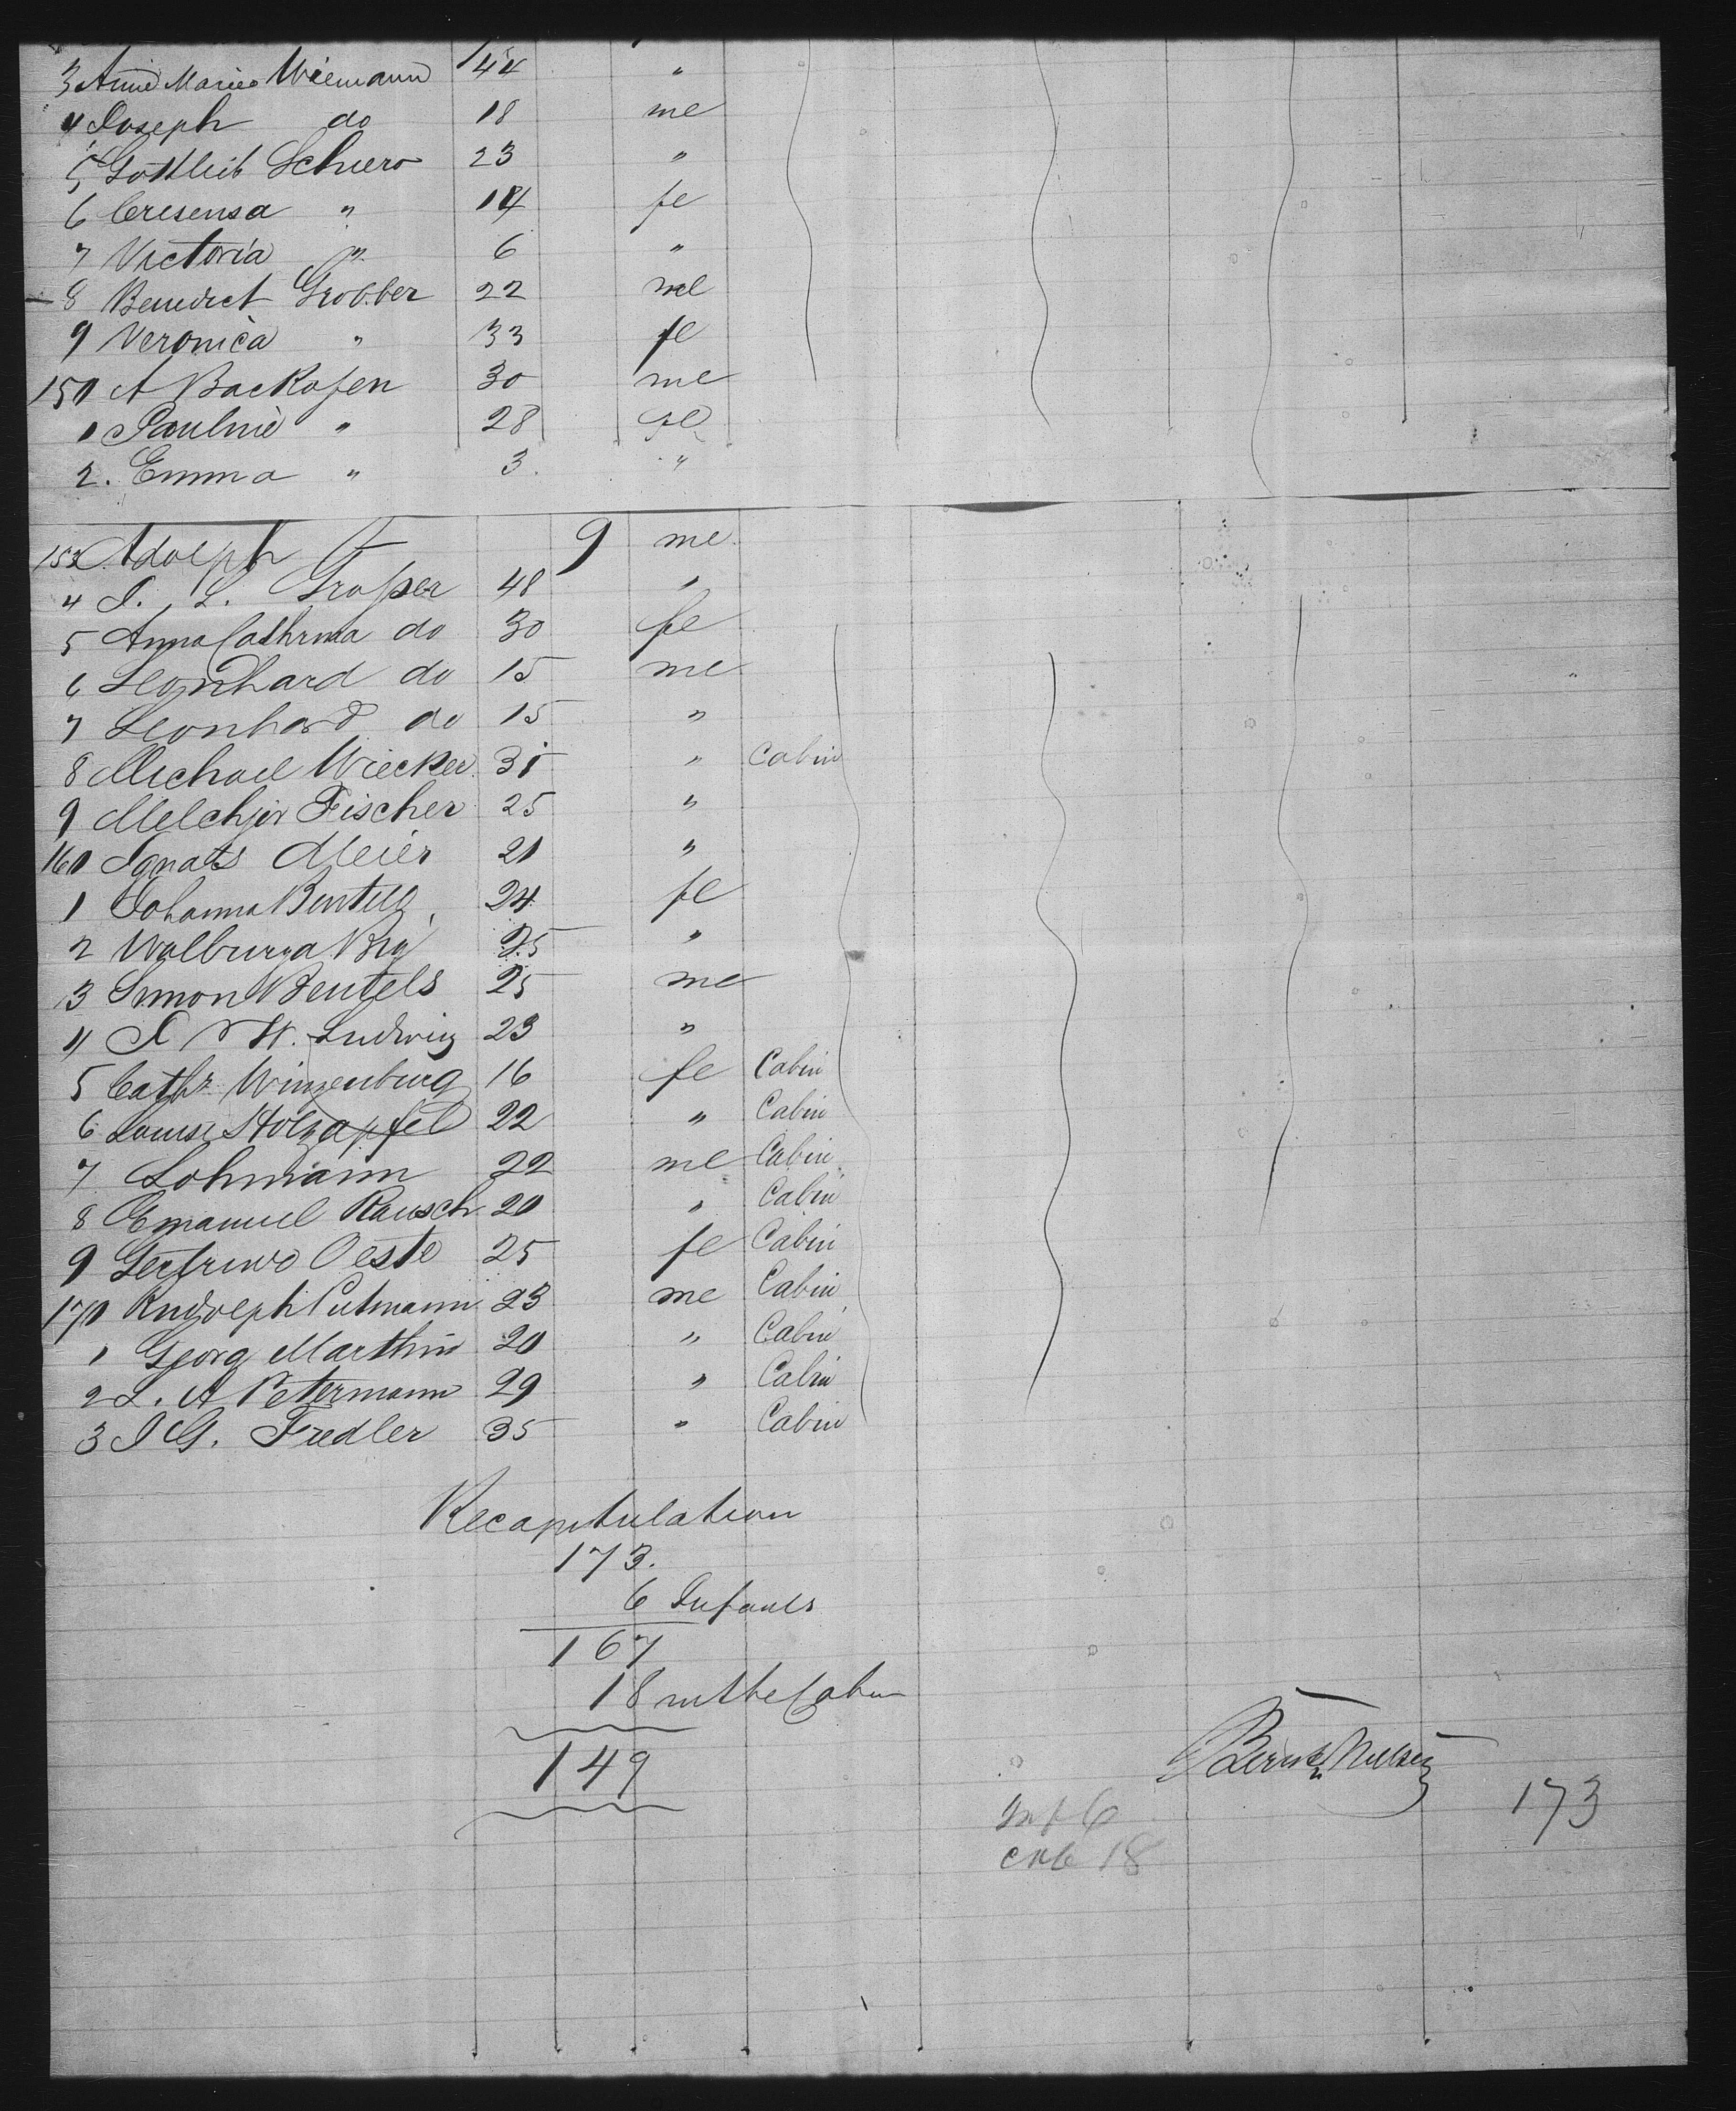 3 Anne Marie Wiemann 44 "
4 Joseph do 18 me
5 Gottlieb Schiero 23 "
6 Cresensa " 14 fe
7 Victoria " 6 "
8 Benedict Grobber 22 me
9 Veronica " 33 fe
150 A Backofen 30 me
1 Pauline " 28 fe
2. Emma " 3 "
153 Adolph 9 me
4 J. L. Grosser 48 "
5 Anna Cathrina do 30 fe
6 Leonhard do 15 me
7 Leonhard do 15 "
8 Michael Wiecker 31 " Cabin
9 Melchior Fischer 25 "
160 Ignats Meier 21 "
1 Johanna 24 fe
2 Walburga 25 "
3 Simon Beutels 25 me
4 Ludwig 23 "
5 Cathr Winzenburg 16 fe Cabin
6 Louise Holzapfel 22 " Cabin
7 Lohmann 22 me Cabin
8 Emanuel Rausch 20 " Cabin
9 Oeste 25 fe Cabin
170 Rudolph Putmann 23 me Cabin
1 Georg Marthin 20 " Cabin
2 L. A Petermann 29 " Cabin
3 J G. Fiedler 35 " Cabin
Recapitulation
173.
6 Infants
167
18 in the Cabin
149
173
Inf 6
cab 18